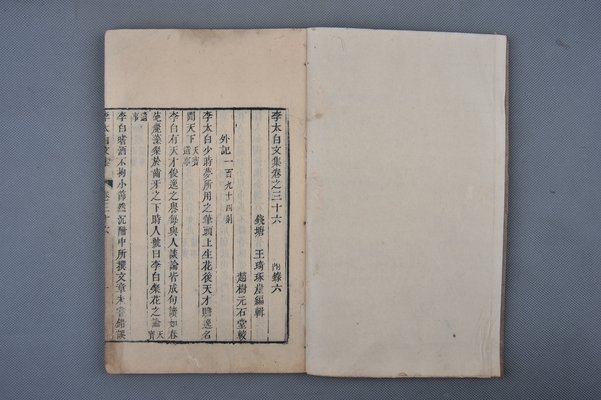 李太白文集卷之三十六 附錄六
錢塘 王琦琢崖編輯
趙樹元石堂較
外記一百九十四則
李太白少時夢所用之筆頭上生花後天才贍逸名
聞天下天寶遺事
李白有天才俊逸之譽每與人談論皆成句讀如春
葩麗藻粲於齒牙之下時人號曰李白粲花之論天寶
遺事
李白嗜酒不拘小節然沉酣中所撰文章未嘗錯誤
李太白文集 卷三十六